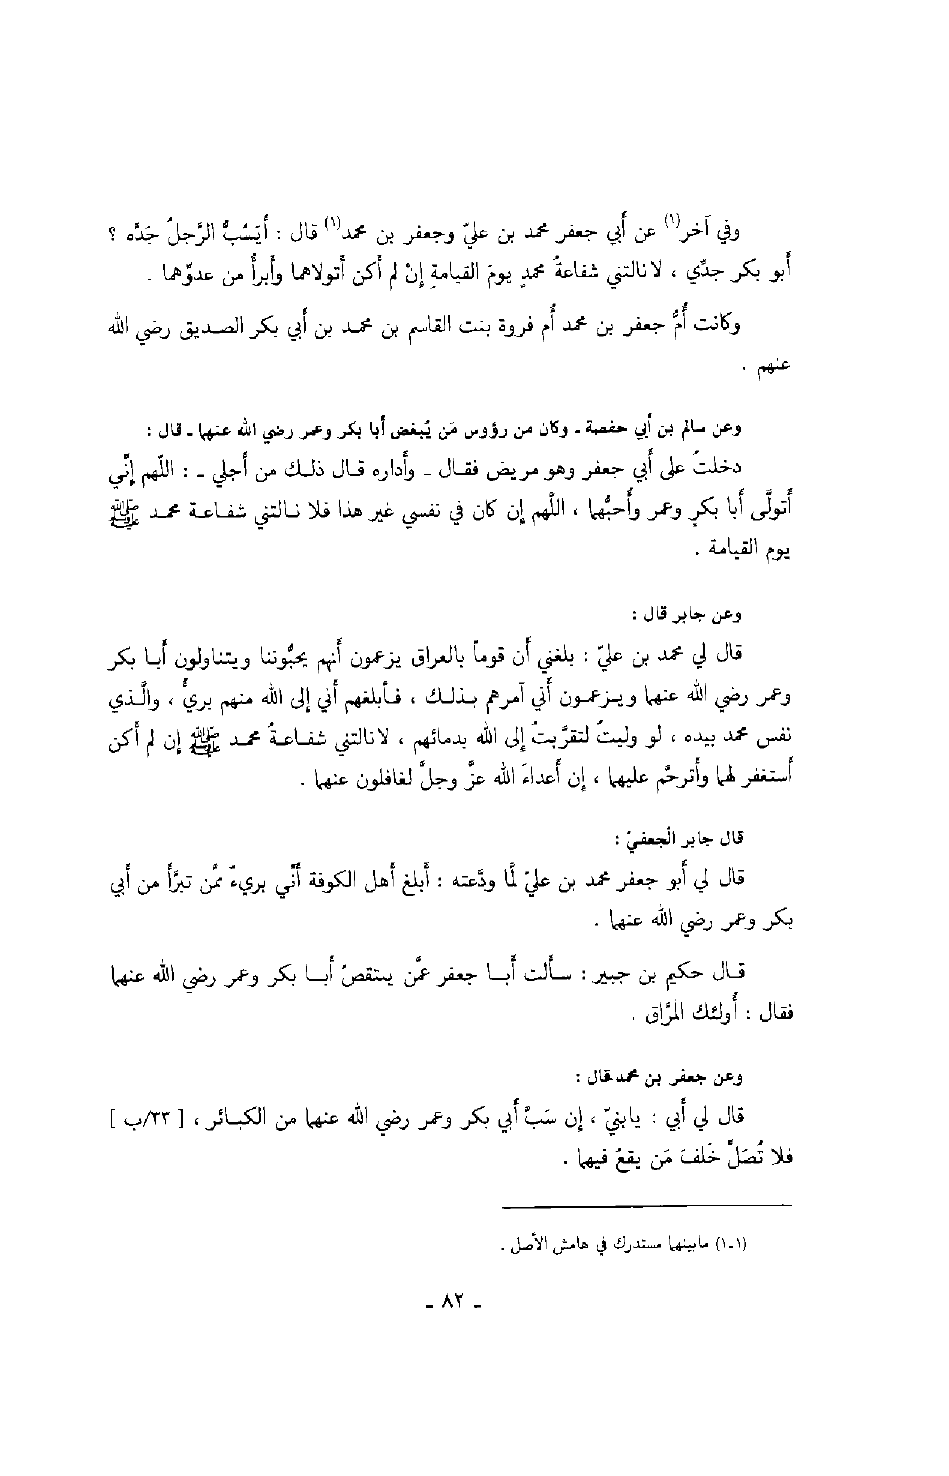 وفي آخر(١) عن أبي جعفر محمد بن عليّ وجعفر بن محمد(١) قال : أيَسُبُّ الرَّجلُ جَدَّه ؟
أبو بكر جدِّي ، لا نالتني شفاعةُ محمدٍ يومَ القيامةِ إنْ لم أكن أتولاهما وأبرأ من عدوّهما .
وكانت أُمُّ جعفر بن محمد أُم فروة بنت القاسم بن محمد بن أبي بكر الصديق رضي الله
عنهم .
وعن سالم بن أبي حفصة - وكان من رؤوس مَن يُبغض أبا بكر وعمر رضي الله عنهما - قال :
دخلتُ على أبي جعفر وهو مريض فقال - وأُداره قال ذلك من أجلي - : اللّهم إنِّي
أتولَّى أبا بكرٍ وعمر وأُحبُّهما ، اللّهم إن كان في نفسي غير هذا فلا نالتني شفاعة محمد ﷺ
يوم القيامة .
وعن جابر قال :
قال لي محمد بن عليّ : بلغني أن قوماً بالعراق يزعمون أنهم يحبُّوننا ويتناولون أبا بكر
وعمر رضي الله عنهما ويزعمون أني آمرهم بذلك ، فأبلغهم أني إلى الله منهم بريءٌ ، والَّذي
نفس محمد بيده ، لو وليتُ لتقرَّبتُ إلى الله بدمائهم ، لا نالتني شفاعةُ محمد ﷺ إن لم أكن
أستغفر لهما وأترحَّم عليهما ، إن أعداءَ الله عزَّ وجلَّ لغافلون عنهما .
قال جابر الجعفيّ :
قال لي أبو جعفر محمد بن عليّ لمَّا ودَّعته : أبلغ أهل الكوفة أنِّي بريءٌ ممَّن تبرَّأ من أبي
بكر وعمر رضي الله عنهما .
قال حكيم بن جبير : سألت أبا جعفر عمَّن ينتقصُ أبا بكر وعمر رضي الله عنهما
فقال : أولئك المرَّاق .
وعن جعفر بن محمد قال :
قال لي أبي : يا بنيّ ، إن سَبَّ أبي بكر وعمر رضي الله عنهما من الكبائر ، [ ٢٣/ب ]
فلا تُصَلِّ خَلفَ مَن يقعُ فيهما .
(١-١) مابينهما مستدرك في هامش الأصل .
- ٨٢ -